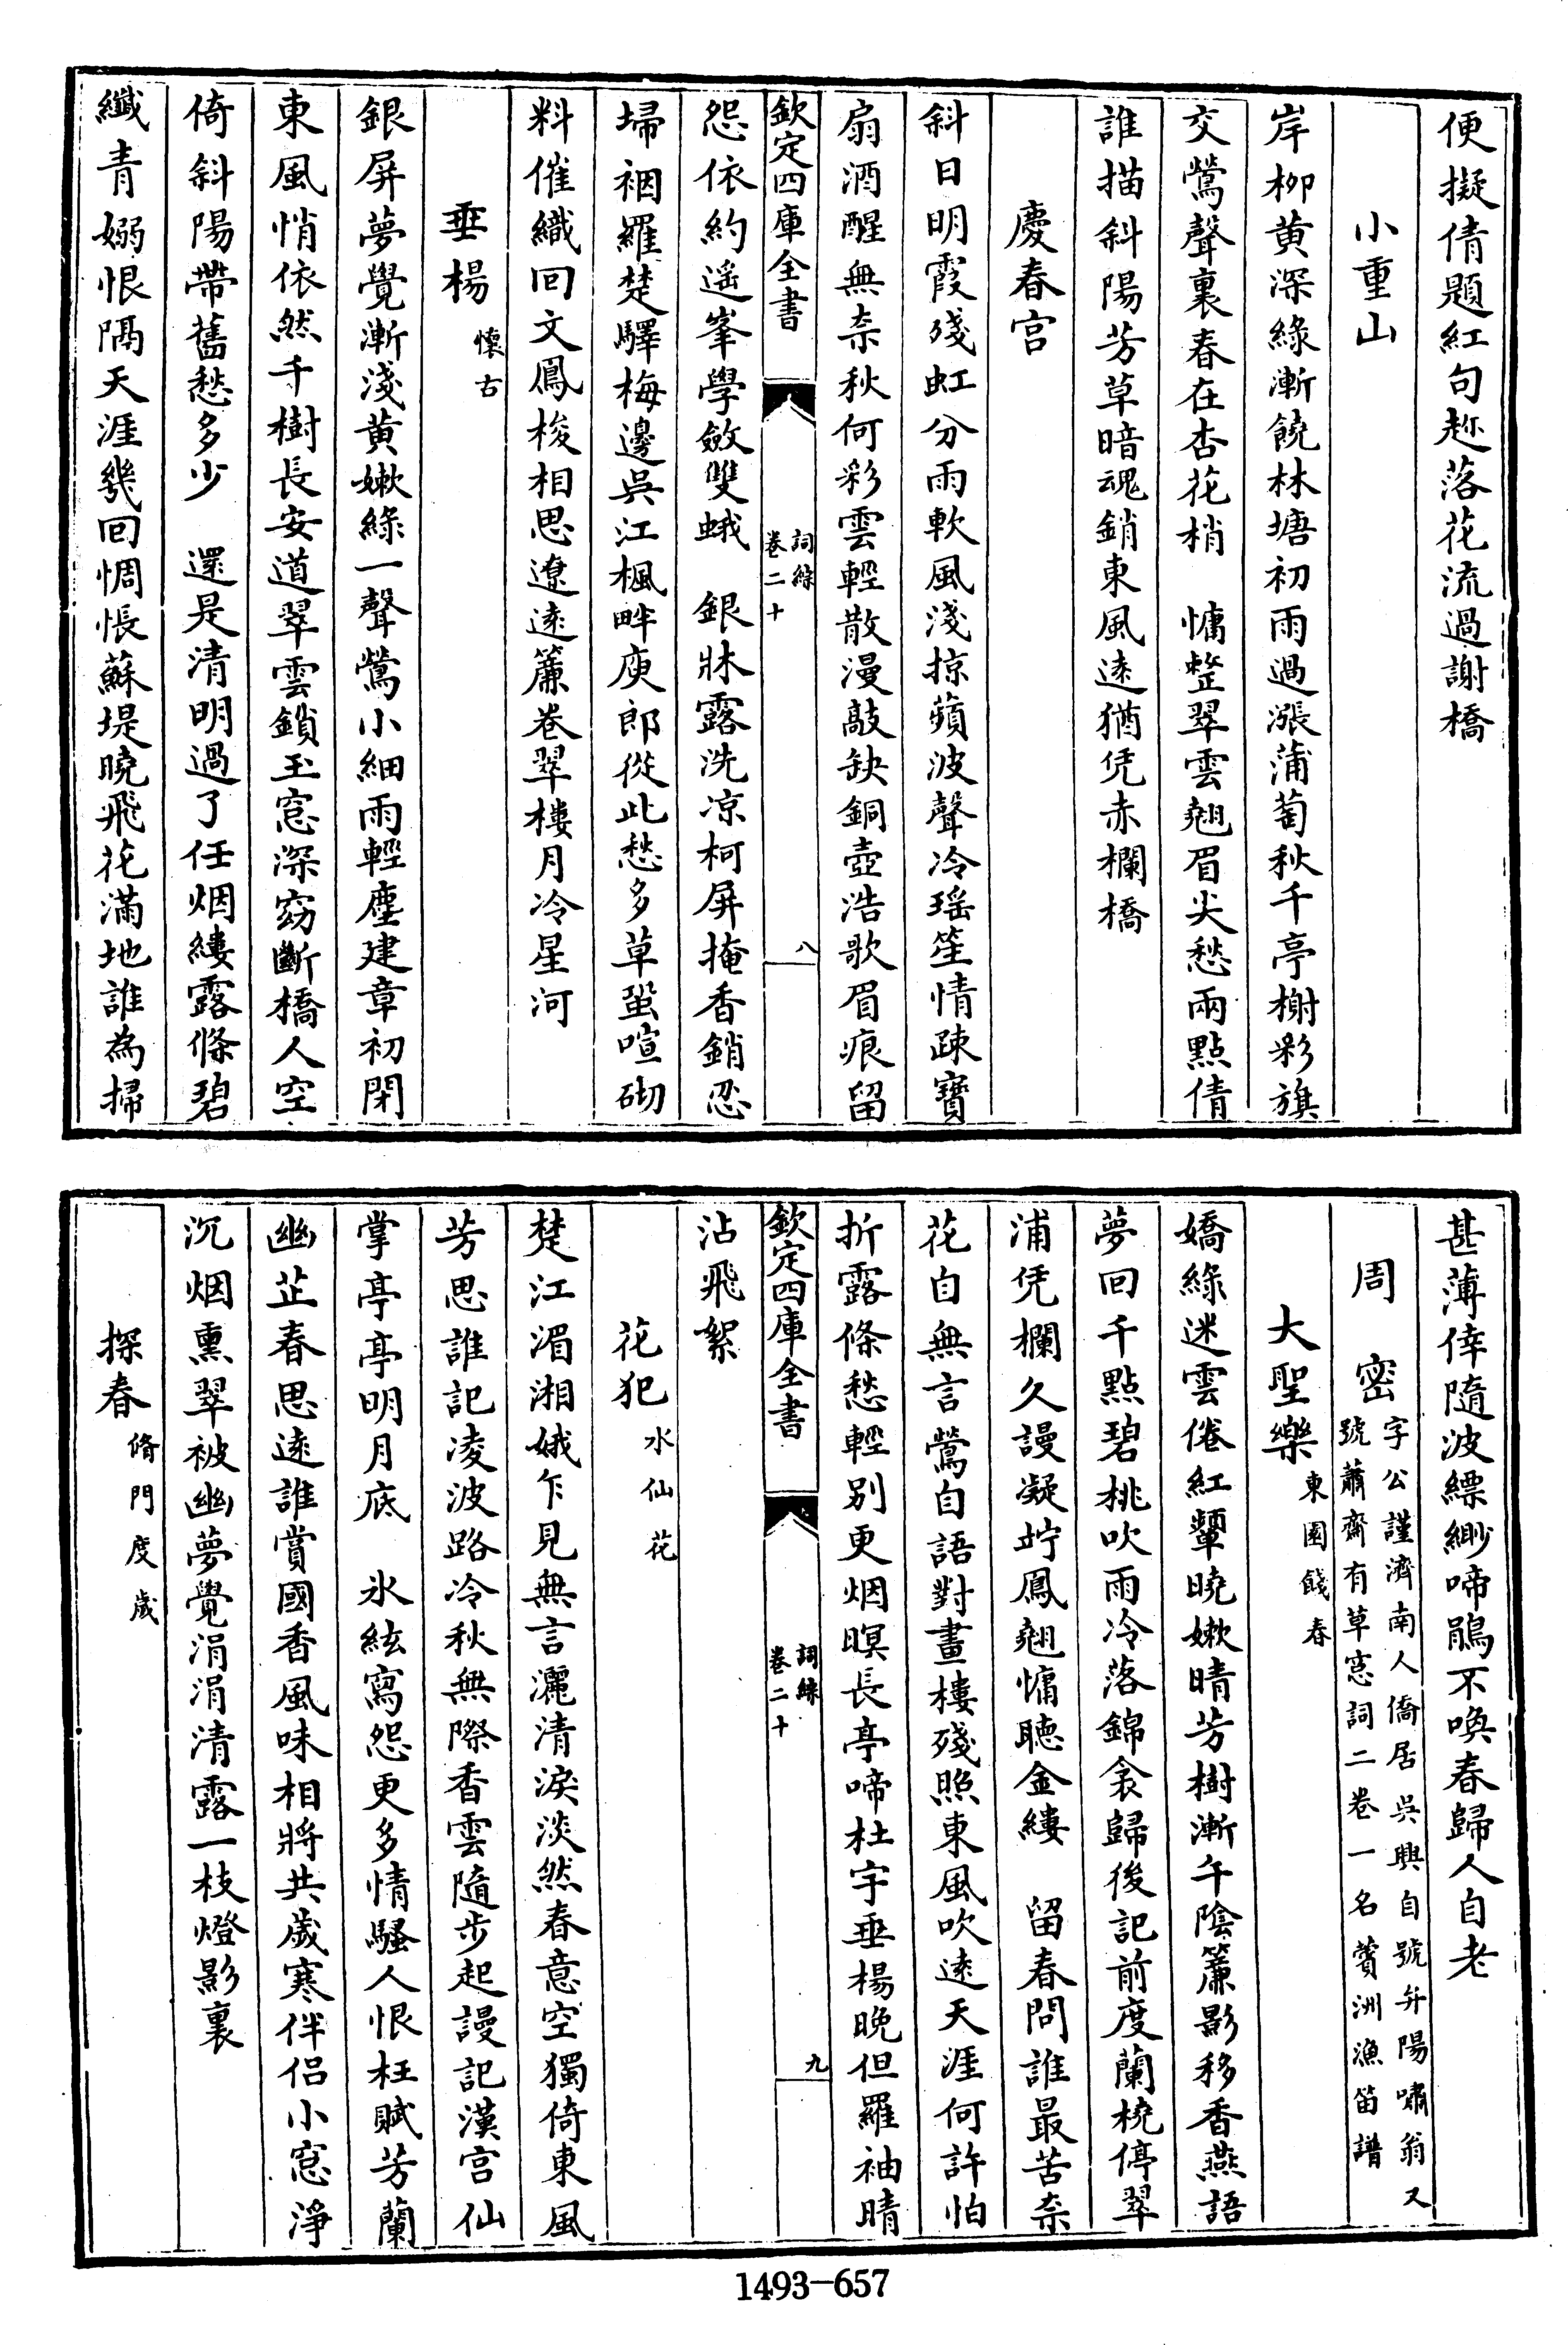 便擬倩題紅句趂落花流過謝橋
小重山
岸栁黄深緑漸饒林塘初雨過漲蒲萄秋千亭榭彩旗
交鶯聲裏春在杏花梢　慵整翠雲翹眉尖愁兩點倩
誰描斜陽芳草暗魂銷東風逺猶凭赤欄橋
慶春宫
斜日明霞殘虹分雨軟風淺掠蘋波聲冷瑶笙情疎寳
扇酒醒無柰秋何彩雲輕散漫敲缺銅壺浩歌眉痕留
欽定四庫全書
詞綜
卷二十
八
怨依約遥峯學斂雙蛾　銀牀露洗凉柯屏掩香銷忍
埽裀羅楚驛梅邊吳江楓畔庾郎從此愁多草蛩喧砌
料催織回文鳳梭相思遼逺簾卷翠樓月冷星河
垂楊懷古
銀屏夢覺漸淺黄嫰緑一聲鶯小細雨輕塵建章初閉
東風悄依然千樹長安道翠雲鎖玉窓深窈斷橋人空
倚斜陽帶舊愁多少　還是清明過了任烟縷露條碧
纖青嫋恨隔天涯㡬回惆悵蘇堤曉飛花滿地誰為掃
甚薄倖隨波縹緲啼鵑不喚春歸人自老
周密字公謹濟南人僑居吳興自號弁陽嘯翁又
號蕭齋有草窓詞二卷一名薲洲漁笛譜
大聖樂東園餞春
嬌緑迷雲倦紅顰曉嫰晴芳樹漸午陰簾影移香燕語
夢回千點碧桃吹雨冷落錦衾歸後記前度蘭橈停翠
浦凭欄久謾凝竚鳳翹慵聽金縷　留春問誰最苦柰
花自無言鶯自語對畫樓殘照東風吹逺天涯何許怕
折露條愁輕别更烟暝長亭啼杜宇垂楊晚但羅袖晴
欽定四庫全書
詞綜
卷二十
九
沾飛絮
花犯水仙花
楚江湄湘娥乍見無言灑清淚淡然春意空獨倚東風
芳思誰記凌波路冷秋無際香雲隨步起謾記漢宫仙
掌亭亭明月底　氷絃寫怨更多情騷人恨枉賦芳蘭
幽芷春思逺誰賞國香風味相將共歲寒伴侣小窓淨
沉烟熏翠被幽夢覺涓涓清露一枝燈影裏
探春脩門度歲
1493-657